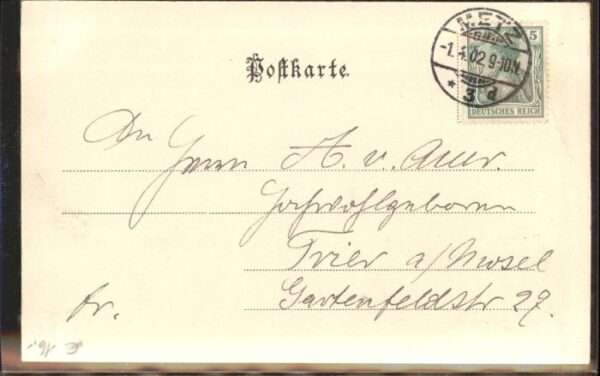 Postkarte.
METZ
-1.4.02 9-10N.
* 3 d
5
DEUTSCHES REICH
An
Herrn A. v. Auer.
Hochwohlgeboren
Trier a/Mosel
Gartenfeldstr 27.
fr.